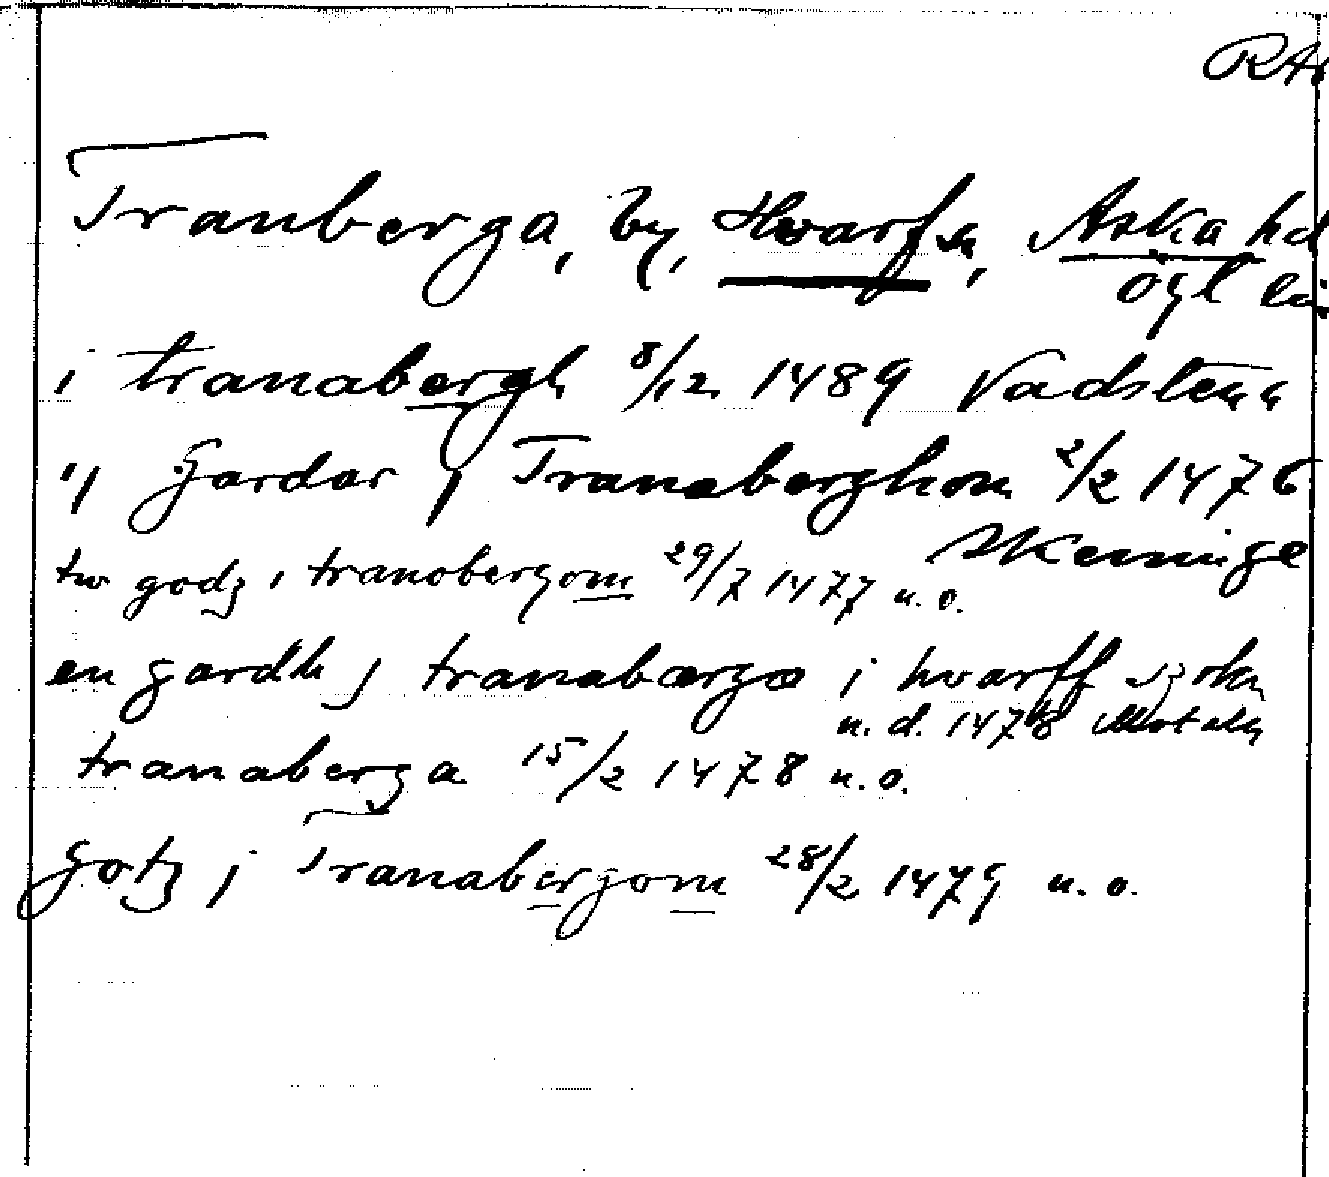 RA
Tranberga, by, Hvarf sn, Aska hd
ögl lä
i tranabergh 8/12 1489 Vadstena
ij Gardar j Tranaberghom 2/2 1476
Skeninge
tw godz i tranobergom 29/7 1477 u. o.
en gardh j tranabærgæ i hvarff sokn
u. d. 1478 Motala
tranaberga 15/2 1478 u. o.
Gotz j Tranabergom 28/2 1479 u. o.